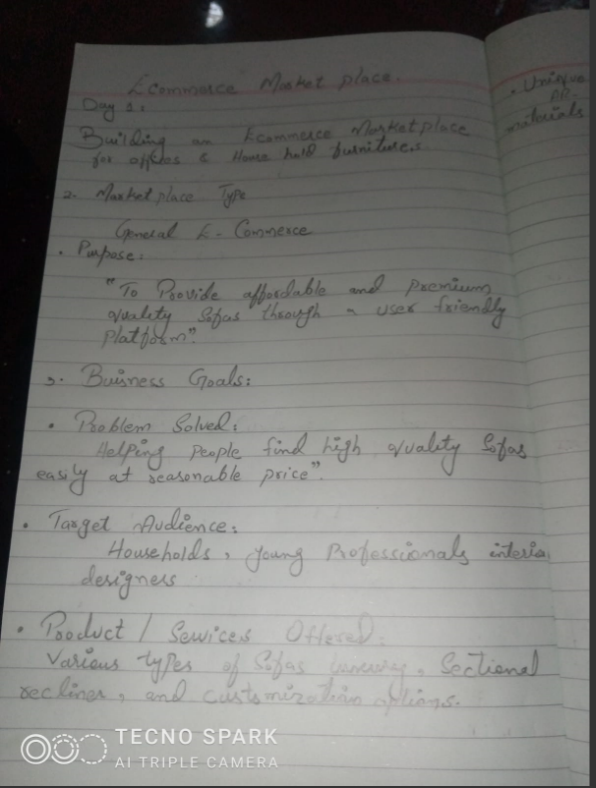 Ecommerce Market place.
Day 1:
Building an Ecommerce Marketplace
for offices & House hold furnitures
2. Market place Type
General E-Commerce
• Purpose:
"To Provide affordable and premium
quality Sofas through a user friendly
Platform".
3. Business Goals:
• Problem Solved:
Helping People find high quality Sofas
easily at reasonable price".
• Target Audience:
Households, young Professionals interior
designers
• Product / Services Offered:
Various types of Sofas luxury, Sectional
recliner, and customization options.
• Unique
materials
TECNO SPARK
AI TRIPLE CAMERA